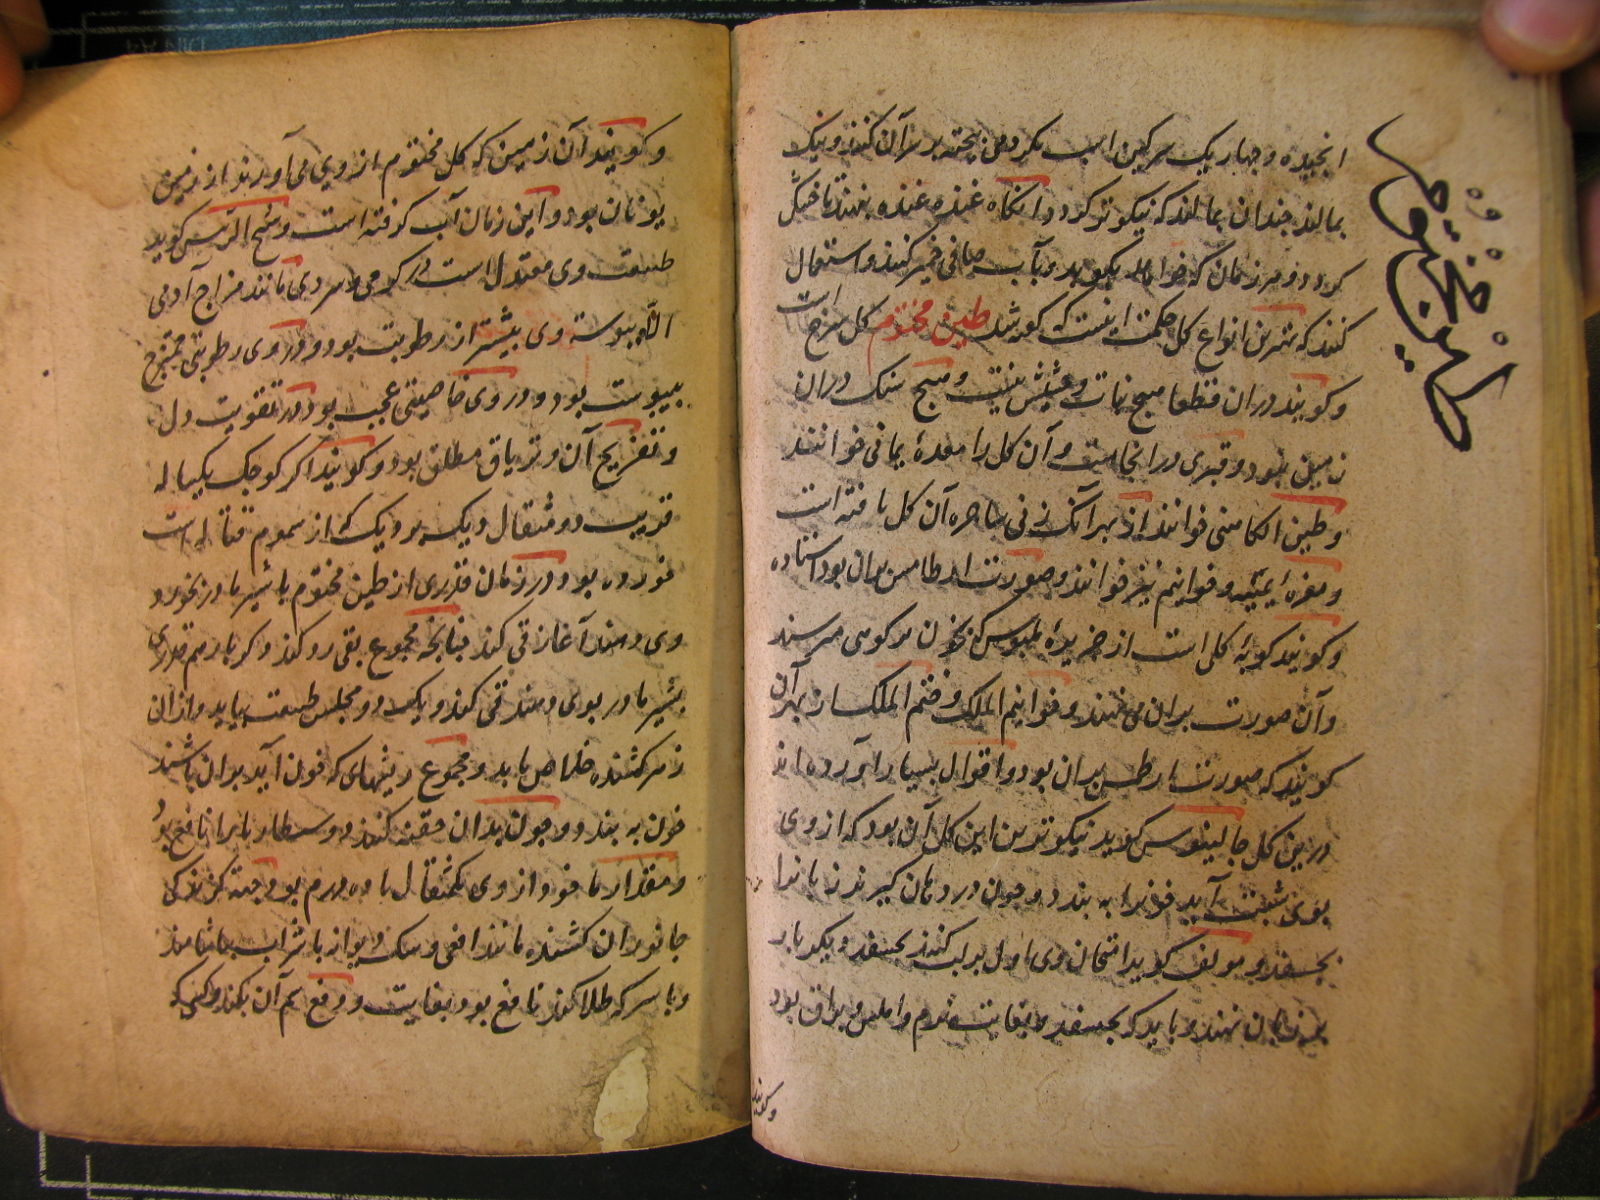 طین مختوم
انجیده و چهار یک سرکین اسب بکر دمی پخته بر سر آن کنند و نیک
بمالند چندان بمالند که نیکوتر کردد و انکاه غنده غنده بنهند تا خشک
کردد و هر زمان که خواهند بکوبند و بآب صافی خمیر کنند و استعمال
کنند که بهترین انواع کل حکمت اینست که کفته شد طین مختوم کل سرخ است
و کویند در ان قطعا هیچ نبات و حشیش نیست و هیچ سنک دران
زمین نبود و قبری در انجاست و آن کل را مغرهٔ یمانی خوانند
و طین الکاهنی خوانند از بهر آنک زنی ساحره آن کل یافته است
و مغرهٔ یمنیه و خواتیم نیز خوانند و صورت ارطامس بران بود استاده
و کویند کونهٔ کلی است از جزیرهٔ ملیوس که
و آن صورت بران می نهند و خواتیم الملک و ختم الملک از بهر آن
کویند که صورت ارطمس بران بود و اقوال بسیار آورده اند
درین کل جالینوس کوید نیکوترین این کل آن بود که از وی
بوی شبث آید خون را به بندد و چون در دهان کیرند زبانرا
بچسفد و مولف کوید امتحان وی اول بر لب کنند بچسفد و دیکر بار بر
سر زبان نهند و باید که بچسفد و بغایت نرم و املس و براق بود
و کویند
و کویند آن زمین که کل مختوم از وی می آورند از زمین
یونان بود و این زمان آب کرفته است و شیخ الرئیس کوید
طبیعت وی معتدل است در کرمی و سردی مانند مزاج آدمی
الا یبوسة وی بیشتر از رطوبت بود و در وی رطوبتی ممتزج
بیبوست بود و در وی خاصیتی عجب بود در تقویت دل
و تفریح آن و تریاق مطلق بود و کویند اکر کوچک یکساله
قریب دو مثقال دیک بر دیک که از سموم قتاله است
خورده بود در زمان قدری از طین مختوم با شیر مادر بخورد
وی دهند آغاز قی کند چنانچه مجموع بقی رد کند و کر بار هم قدری
بشیر مادر بوی دهند قی کند و یک دو مجلس طبیعت بیاید و از ان
زهر کشنده خلاص یابد و مجموع ریشهای که خون آید بران پاشند
خون به بندد و چون بدان حقنه کنند دوسنطاریا را نافع بود
و مقدار ماخوذ از وی یکمثقال تا ده درم بود جهة کزندکی
جانوران کشنده مانند افعی و سک دیوانه با شراب بیاشامند
و با سرکه طلا کنند نافع بود بغایت و دفع سم آن بکند و کسی که